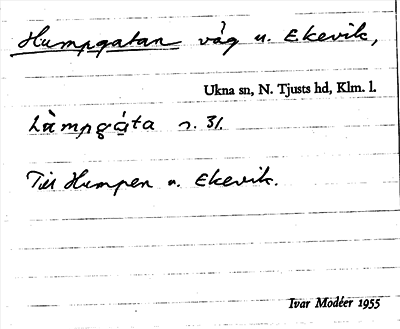 Humpgatan väg u. Ekevik,
Ukna sn, N. Tjusts hd, Klm. l.
r. 31.
Till Humpen u. Ekevik.
Ivar Modéer 1955